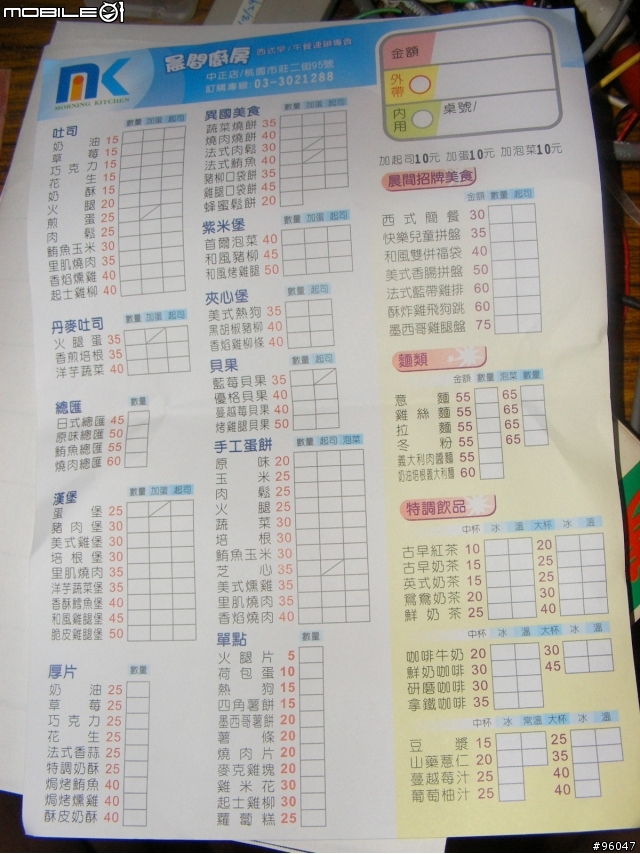 MOBILE01
MK
MORNING KITCHEN
晨間廚房 西式早/午餐速簡專賣
中正店/桃園市莊二街95號
訂購專線:03-3021288
金額
外帶
內用
桌號/
加起司10元 加蛋10元 加泡菜10元
吐司 數量 加蛋 起司
奶油 15
草莓 15
巧克力 15
花生 15
奶酥 15
火腿 20
煎蛋 25
肉鬆 25
鮪魚玉米 30
里肌燒肉 35
香焰燻雞 40
起士雞柳 40
丹麥吐司 數量 加蛋 起司
火腿蛋 35
香煎培根 35
洋芋蔬菜 40
總匯 數量
日式總匯 45
原味總匯 50
鮪魚總匯 55
燒肉總匯 60
漢堡 數量 加蛋 起司
蛋堡 25
豬肉堡 30
美式雞堡 30
培根堡 30
里肌燒肉 35
洋芋蔬菜堡 35
香酥鱈魚堡 40
和風雞腿堡 45
脆皮雞腿堡 50
厚片 數量
奶油 25
草莓 25
巧克力 25
花生 25
法式香蒜 25
特調奶酥 25
焗烤鮪魚 40
焗烤燻雞 40
酥皮奶酥 40
異國美食 數量 加蛋 起司
蔬菜燒餅 35
燒肉燒餅 40
法式肉鬆 30
法式鮪魚 40
豬柳口袋餅 35
雞腿口袋餅 45
蜂蜜鬆餅 20
紫米堡 數量 加蛋 起司
首爾泡菜 40
和風豬柳 45
和風烤雞腿 50
夾心堡 數量 起司
美式熱狗 35
黑胡椒豬柳 40
香焰雞柳條 40
貝果 數量 起司
藍莓貝果 35
優格貝果 40
蔓越莓貝果 40
烤雞腿貝果 50
手工蛋餅 數量 加蛋 起司 泡菜
原味 20
玉米 25
肉鬆 25
火腿 25
蔬菜 30
培根 30
鮪魚玉米 30
芝心 35
美式燻雞 35
里肌燒肉 35
香焰燒肉 40
單點 數量
火腿片 5
荷包蛋 10
熱狗 15
四角薯餅 15
墨西哥薯餅 20
薯條 20
燒肉片 20
麥克雞塊 20
雞米花 30
起士雞柳 30
蘿蔔糕 25
晨間招牌美食
金額 數量 起司
西式簡餐 30
快樂兒童拼盤 35
和風雙併福袋 40
美式香腸拼盤 50
法式藍帶雞排 60
酥炸雞飛狗跳 60
墨西哥雞腿盤 75
麵類
金額 數量 泡菜 數量
意麵 55 65
雞絲麵 55 65
拉麵 55 65
冬粉 55 65
義大利肉醬麵 55
奶油培根義大利麵 60
特調飲品
中杯 冰 溫 大杯 冰 溫
古早紅茶 10 20
古早奶茶 15 25
英式奶茶 15 25
鴛鴦奶茶 20 30
鮮奶茶 25 40
中杯 冰 溫 大杯 冰 溫
咖啡牛奶 20 30
鮮奶咖啡 30 45
研磨咖啡 30
拿鐵咖啡 35
中杯 冰 常溫 大杯 冰 溫
豆漿 15 25
山藥薏仁 20 35
蔓越莓汁 25 40
葡萄柚汁 25 40
#96047